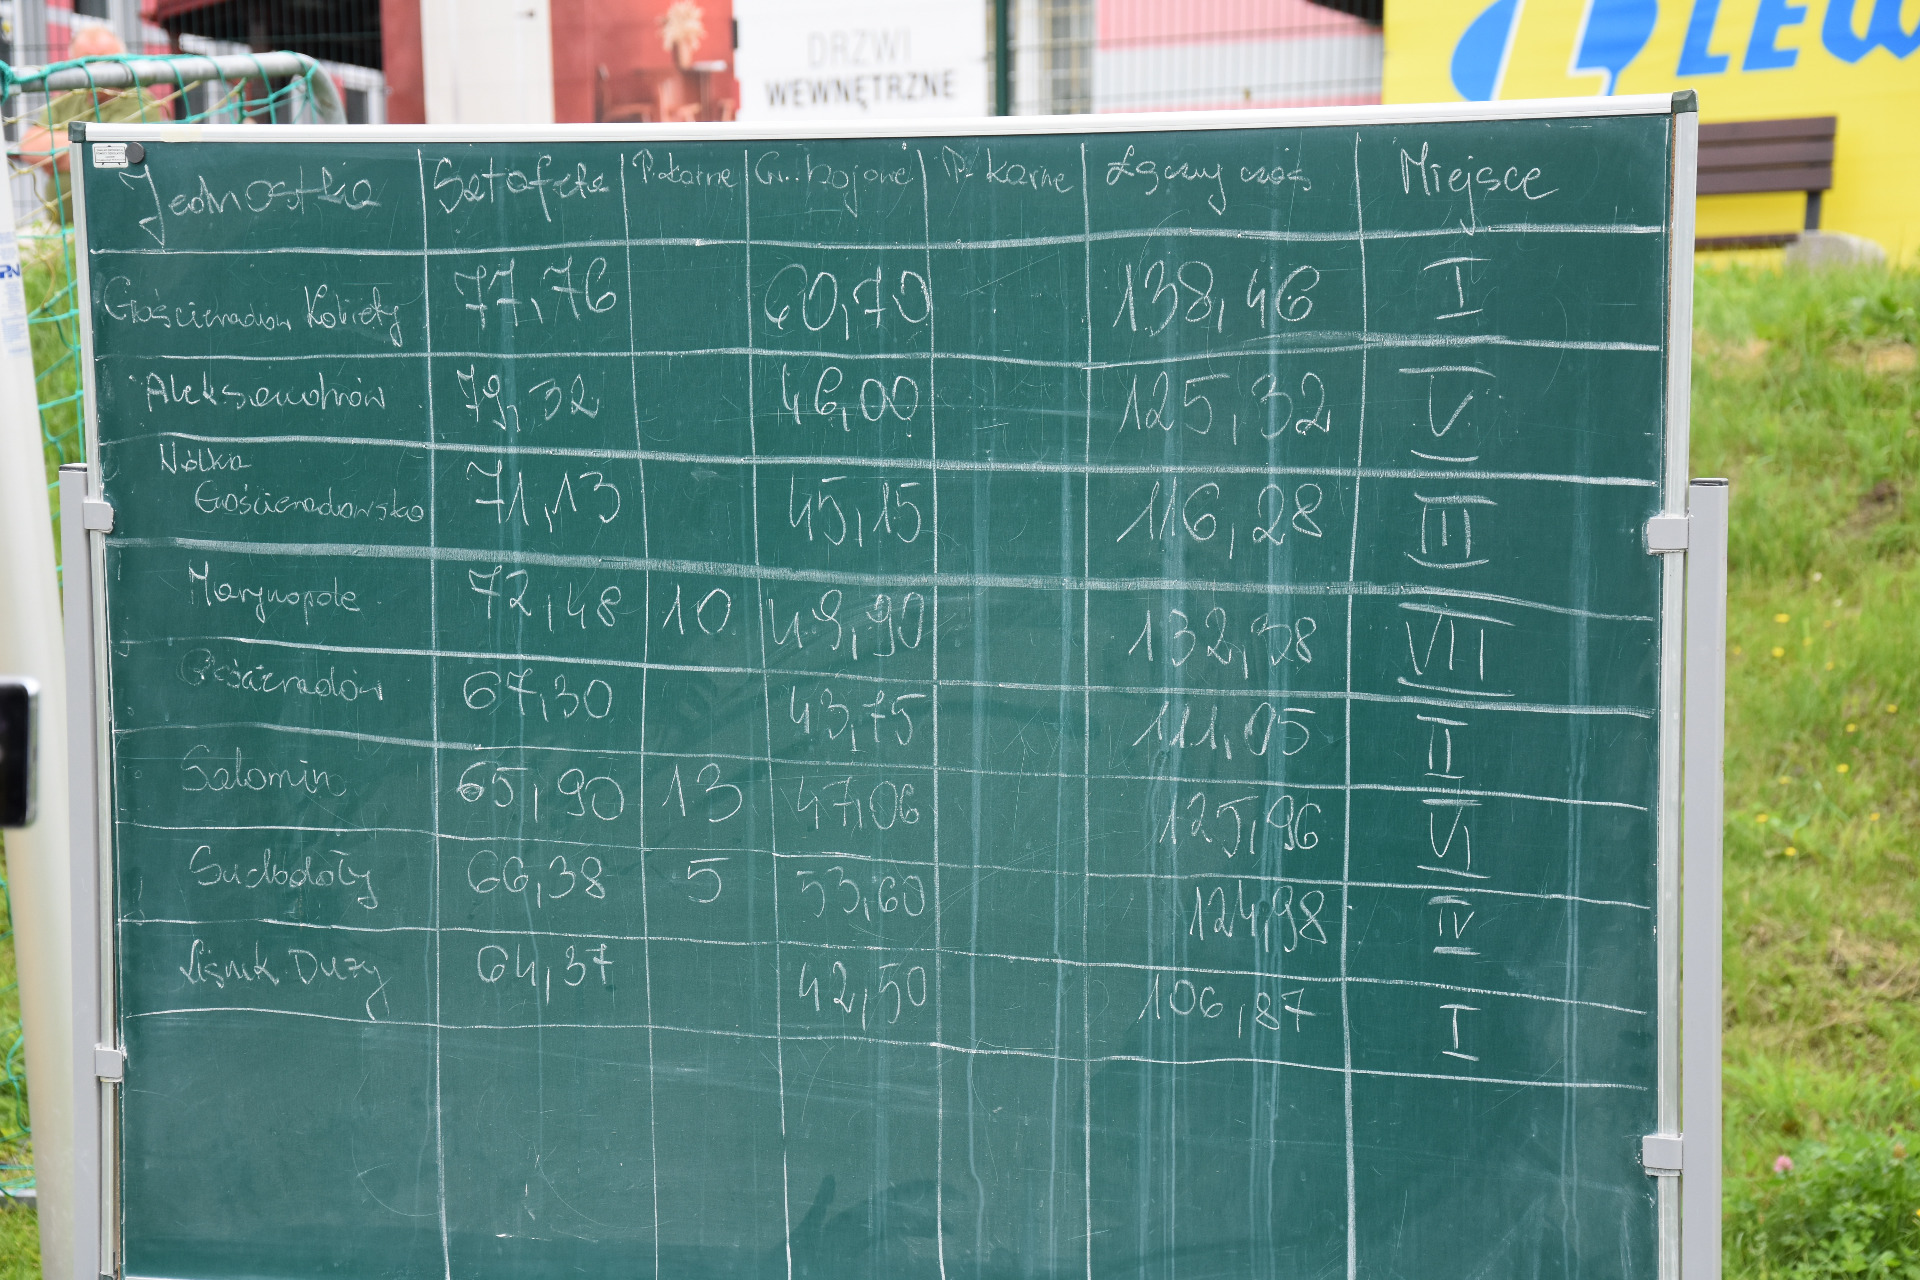 DRZWI
WEWNĘTRZNE
LEW
Jednostka Sztafeta P. karne Ćw. bojowe P. karne Łączny czas Miejsce
Gościeradów Kobiety 77,76 60,70 138,46 I
Aleksandrów 79,32 46,00 125,32 V
Wólka
Gościeradowska 71,13 45,15 116,28 III
Marynopole 72,48 10 49,90 132,38 VII
Gościeradów 67,30 43,75 111,05 II
Salomin 65,90 13 47,06 125,96 VI
Suchodoły 66,38 5 53,60 124,98 IV
Liśnik Duży 64,37 42,50 106,87 I